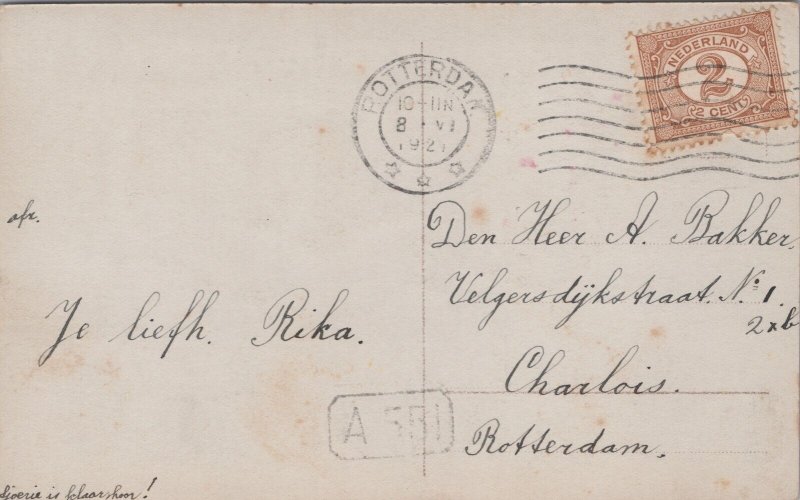 afz.
Je liefh. Rika.
ROTTERDAM
10-11N
8 VI
1921
NEDERLAND
2
2 CENT
Den Heer A. Bakker.
Velgersdijkstraat. No. 1
2xb
Charlois.
Rotterdam.
A 551
is klaar hoor!